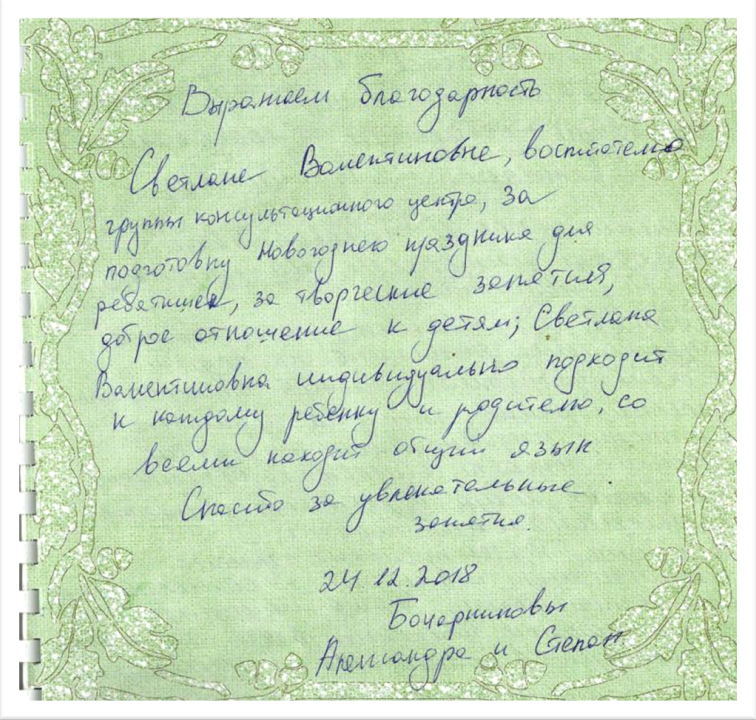 Выражаем благодарность
Светлане Валентиновне, воспитателю
группы консультационного центра, за
подготовку Новогоднего праздника для
ребятишек, за творческие занятия,
доброе отношение к детям; Светлана
Валентиновна индивидуально подходит
к каждому ребёнку и родителю, со
всеми находит общий язык
Спасибо за увлекательные
занятия.
24.12.2018
Александра и Степан